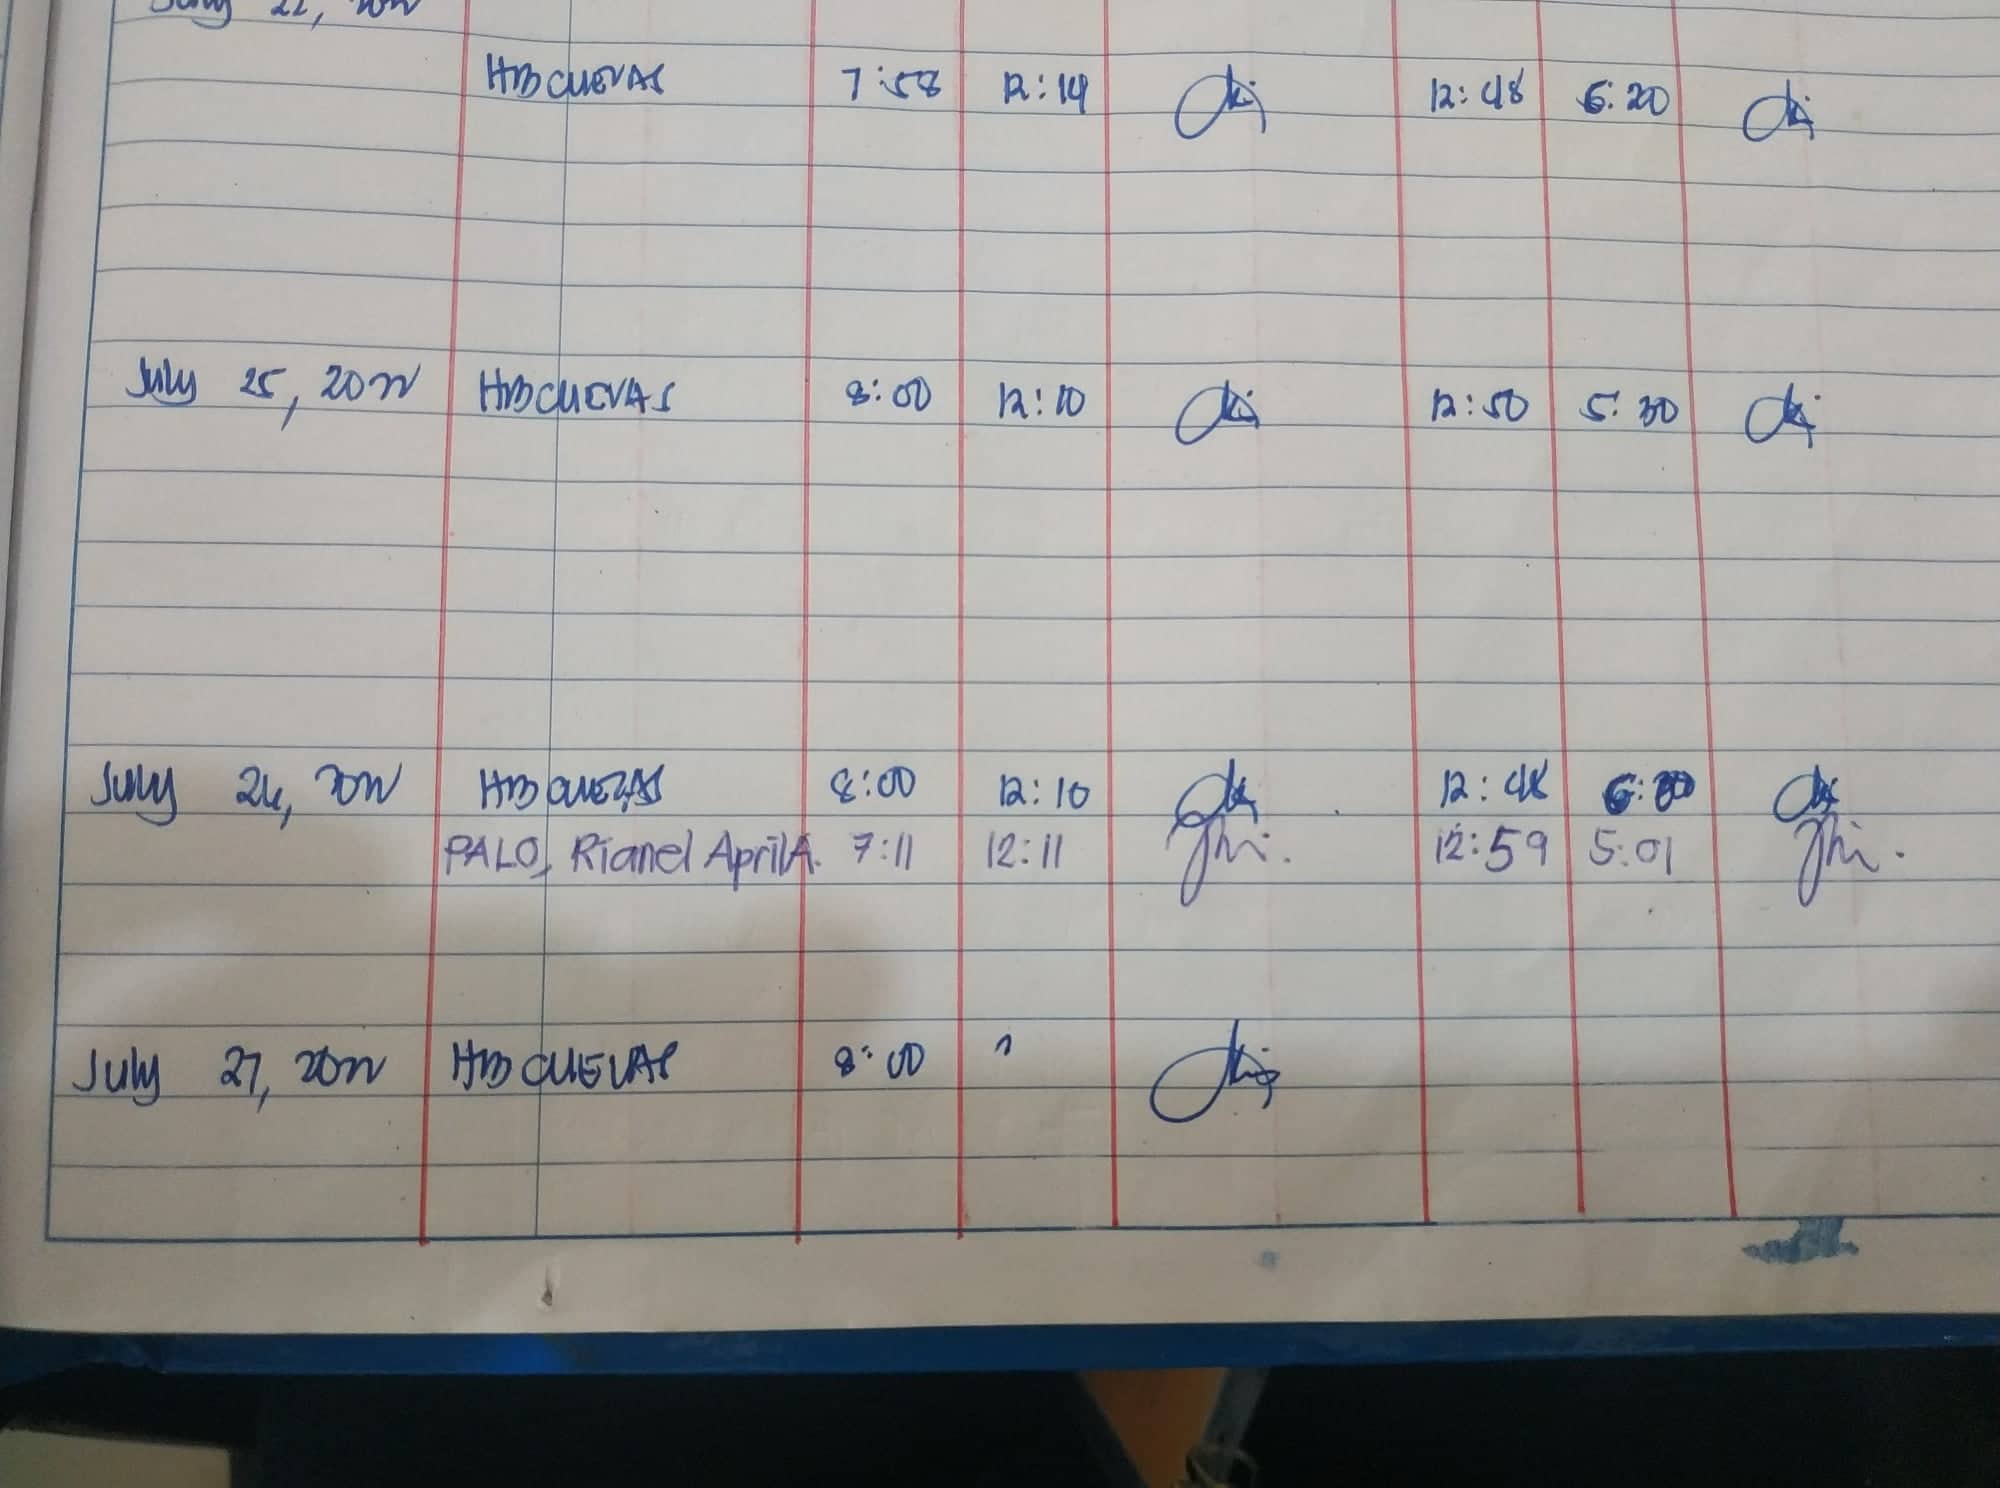 July 22, 2022
HBCUEVAS 7:58 12:14 12:48 5:20
July 25, 2022 HBCUEVAS 8:00 12:10 12:50 5:30
July 26, 2022 HBCUEVAS 8:00 12:10 12:48
PALO, Rianel April A. 7:11 12:11 12:59 5:01
July 27, 2022 HBCUEVAS 8:00